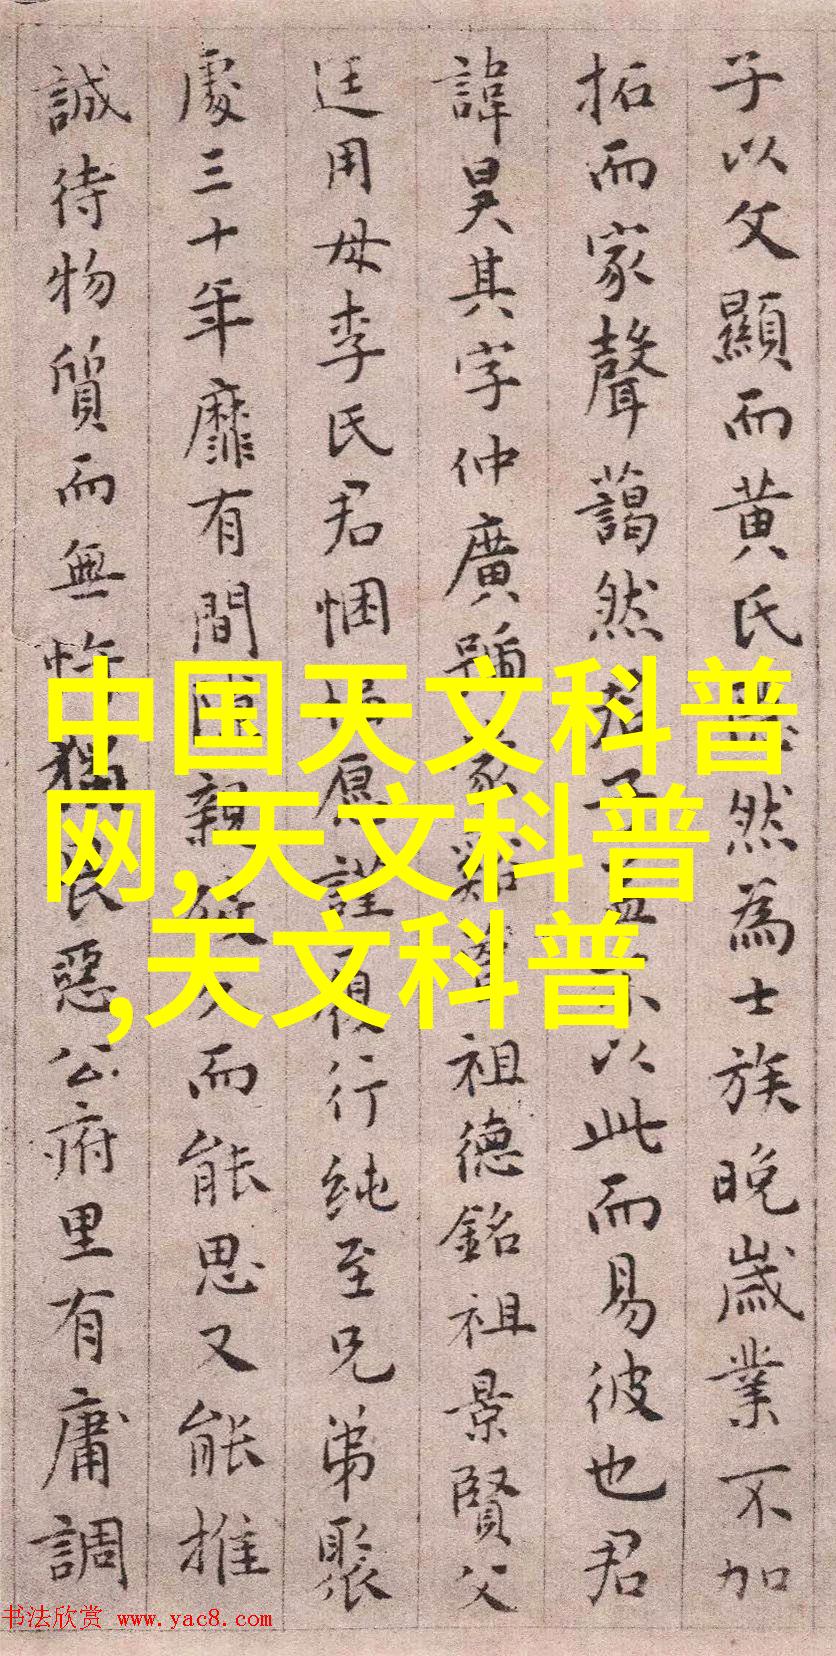 子以父顯而黄氏然為士族晚歲業不加
拓而家聲藹然子以此而易彼也君
諱昊其字仲廣號祖德銘祖景賢父
廷用母李氏君悃愿謹履行纯至兄弟聚
處三十年靡有間親而能思又能推
誠待物質而無忤猶長惡公府里有庸調
中国天文科普
网,天文科普
,天文科普
书法欣赏 www.yac8.com